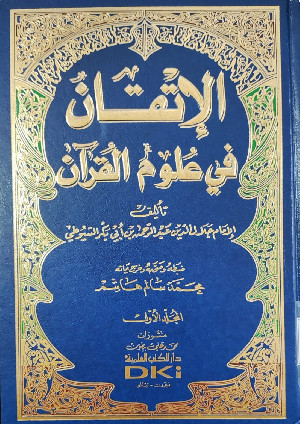 الإتقان
في علوم القرآن
تأليف
الإمام جلال الدين عبد الرحمن بن أبي بكر السيوطي
ضبطه وصححه وخرج آياته
محمد سالم هاشم
المجلد الأول
منشورات
محمد علي بيضون
دار الكتب العلمية
DKi
بيروت - لبنان